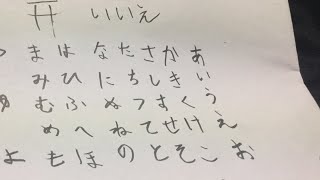 いいえ
まはなたさかあ
みひにちしきい
むふぬつすくう
めへねてせけえ
よもほのとそこお